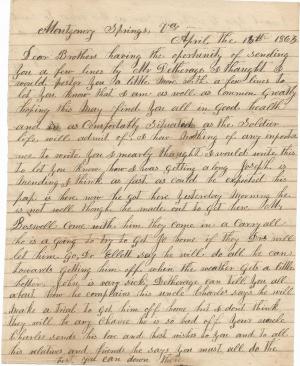 Montgomery Springs, Va
April the 18th 1863
Dear Brothers having the oportunity of sending
you a few lines by Mr Detherage I thought I
would pester you a little more with a few lines to
let you know that I am as well as Common Greatly
hoping this may find you all in Good health
and as Comfortably Situated as the Soldier
life will admit of, I have Nothing of any importa
nce to write you I mearly thought I would write this
to let you know how I was getting along Joseph is
mending I think as fast as could be expected his
pap is here now he got here Yesterday Morning he
is not well though he made out to get here Mr
Boswell Come with him they come in a Carryall
he is a going to try to Get Jo home if they will
let him Go, Dr Ellett say he will do all he can
towards Getting him off when the weather Gets a little
better John is very sick, Detherage can tell you all
about how he complains his uncle Charles says he will
make a Trial to Get him off home but I dont think
they will be any Chance he is so bad off Your uncle
Charles sends his love and best wishes to you and to all
his relatives and friends he says you must all do the
best you can down there